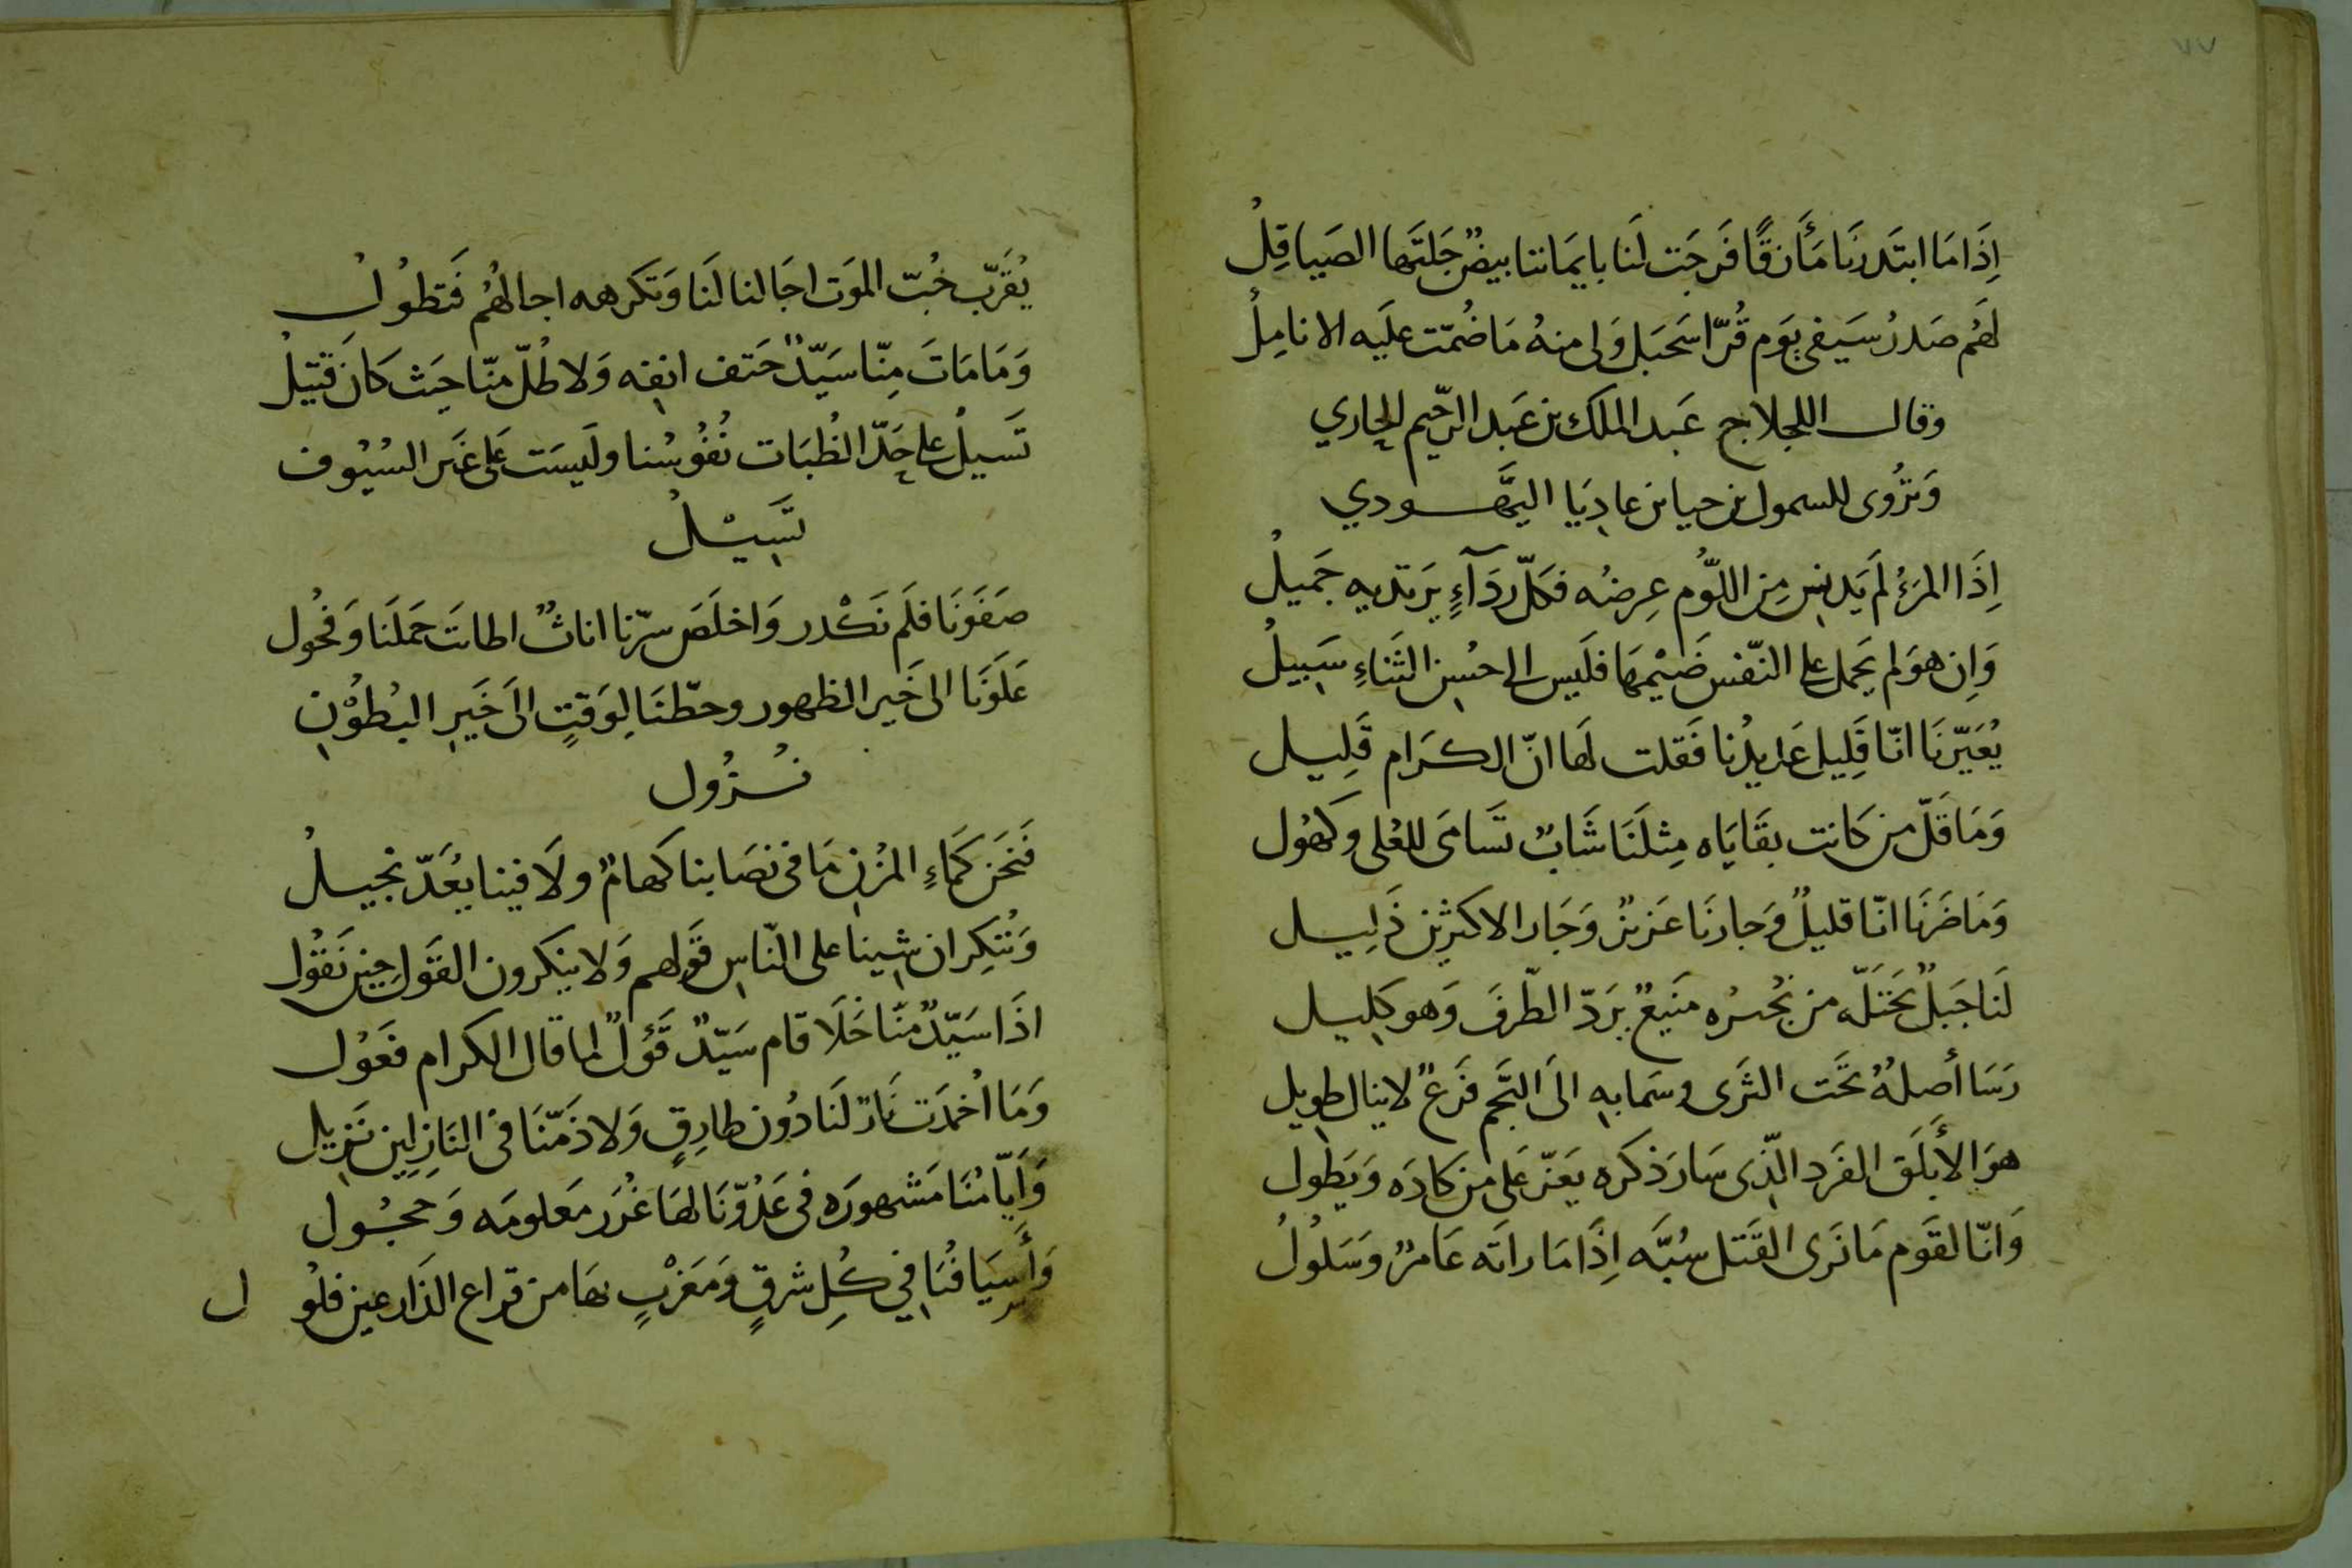 ٧٧
اِذَا مَا ابتَدرنَا مَأزقًا فَرجَت لَنا بايمَاننا بيضٌ جَلتَها الصَياقِلُ
لهَم صَدرُ سَيفى يوَم قُرّا سَحبَل وَلى منهُ مَا ضُمّت علَيه الانامِلُ
وقال اللجلاج عَبد الملك بن عَبد الرّحيم الحارثي
وَتروى للسمول بن حيا بن عادِيَا اليَهودي
اِذَا المرَءُ لَم يَدنس مِن اللوّم عِرضُه فكلّ ردَآءٍ يَرتديه جَميلُ
وَاِن هوَلم يحَمل على النّفس ضَيْمهَا فلَيس الى حسُن الثَناءِ سَبيلُ
يُعَيّرنَا انّا قَلِيل عَديدُنا فَقلت لهَا انّ الكرَام قَلِيل
وَمَا قَلّ من كَانت بقَايَاه مِثلنَا شَابٌ تسَامَى للعُلى وكَهوُل
وَمَا ضَرنَا انّا قليلٌ وَجارنَا عَزيزٌ وَجَار الاكثرين ذَلِيل
لَنا جَبلٌ يَحتَلّه من نُجيرُه مَنيعٌ يرَدّ الطّرفَ وَهو كلِيل
رَسَا أصلهُ تحَت الثرَى وسمَا به الىَ النّجم فَرعٌ لا ينال طويل
هوَ الأبلَق الفَرد الذّى سَار ذكره يعَزّ عَلى من كَادَه وَيَطول
وَانّا لقَوم مَا نَرى القَتل سُبَّه اِذَا مَا راتَه عَامرٌ وسَلولُ
يُقَرّب حُبّ الموَت اجَالنا لَنا وَتكرهه اجالهُم فَتطوُلُ
وَمَا مَاتَ مِنّا سَيّدٌ حَتف انفِه وَلا طُلّ منّا حيَث كَان قتيلُ
تَسيلُ على حَدّ الظُبَات نُفوُسُنا ولَيسَت عَلى غَير السُيوُف
تَسِيْلُ
صَفَونَا فلَم نَكْدر وَاخلَصَ سرّنا اناثٌ اطابَت حَملَنا وَفحُول
عَلَونَا الى خَير الظهور وحطّنَا لِوَقتٍ الىَ خَيرِ البُطوُنِ
نُزُول
فَنحَن كَمَاءِ المزُن مَا فى نصَابنا كهامٌ ولَا فينا يعُدّ بَخيلُ
وَننُكِر ان شِينا على النّاس قَولهم وَلا ينكرون القَول حِين نَقوُل
اذَا سَيّدٌ منّا خَلَا قام سَيّدٌ قؤُلٌ لما قال الكرام فعَوُل
وَمَا اُخمدَت نَارٌ لنَا دُون طارِقٍ وَلا ذَمّنَا فى النَازِلِين نَزِيل
وَأيّامُنَا مَشهورَه فى عَدُوّنَا لهَا غُرَر مَعلومَه وَحجُول
وَأسيَافُنَا فِي كُلِ شرقٍ وَمَغرْبٍ بهَا من قراع الدَارعين فلُول